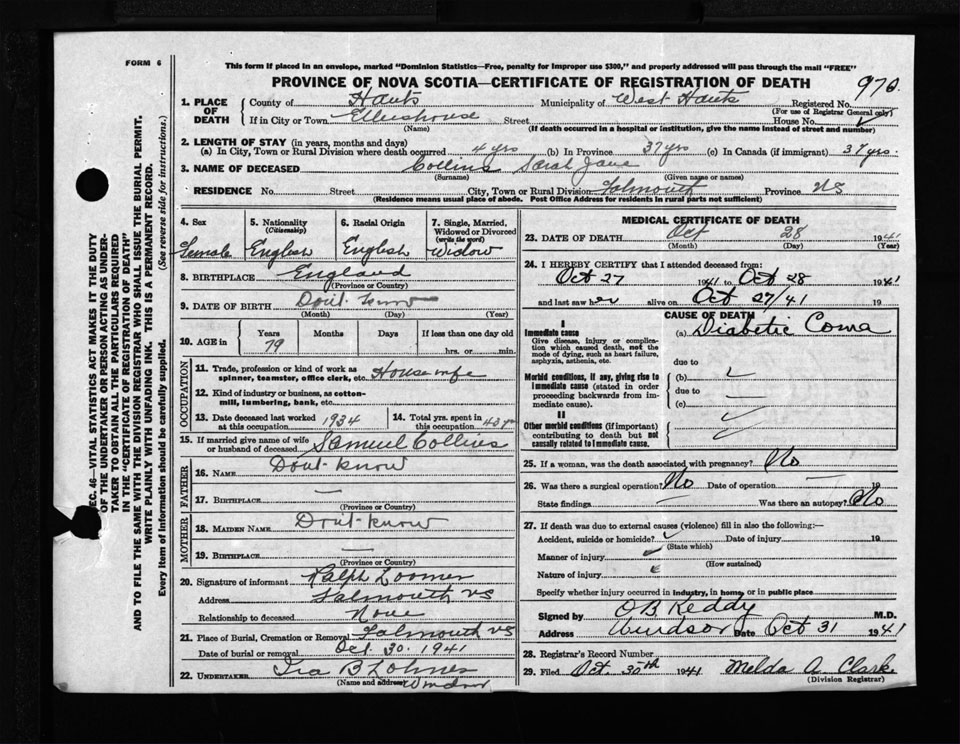 FORM 6
This form if placed in an envelope, marked "Dominion Statistics—Free, penalty for improper use $300," and properly addressed will pass through the mail "FREE"
PROVINCE OF NOVA SCOTIA—CERTIFICATE OF REGISTRATION OF DEATH
970.
1. PLACE OF DEATH
County of Hants Municipality of West Hants Registered No.
(For use of Registrar General only)
If in City or Town Ellershouse Street House No.
(Name) (If death occurred in a hospital or institution, give the name instead of street and number)
2. LENGTH OF STAY (in years, months and days)
(a) In City, Town or Rural Division where death occurred 4 yrs (b) In Province 37 yrs (c) In Canada (if immigrant) 37 yrs.
3. NAME OF DECEASED Collins Sarah Jane
(Surname) (Given name or names)
RESIDENCE No. Street City, Town or Rural Division Falmouth Province NS
(Residence means usual place of abode. Post Office Address for residents in rural parts not sufficient)
SEC. 46—VITAL STATISTICS ACT MAKES IT THE DUTY
OF THE UNDERTAKER OR PERSON ACTING AS UNDER-
TAKER TO OBTAIN ALL THE PARTICULARS REQUIRED
IN THE "CERTIFICATE OF REGISTRATION OF DEATH"
AND TO FILE THE SAME WITH THE DIVISION REGISTRAR WHO SHALL ISSUE THE BURIAL PERMIT.
WRITE PLAINLY WITH UNFADING INK. THIS IS A PERMANENT RECORD.
Every item of Information should be carefully supplied. (See reverse side for instructions.)
4. Sex
Female
5. Nationality
(Citizenship)
English
6. Racial Origin
English
7. Single, Married,
Widowed or Divorced
(write the word)
Widow
8. BIRTHPLACE England
(Province or Country)
9. DATE OF BIRTH Don't know
(Month) (Day) (Year)
10. AGE in
Years Months Days If less than one day old
79 hrs. or min.
OCCUPATION
11. Trade, profession or kind of work as
spinner, teamster, office clerk, etc. Housewife
12. Kind of industry or business, as cotton-
mill, lumbering, bank, etc.
13. Date deceased last worked
at this occupation 1934
14. Total yrs. spent in
this occupation 43 yr
15. If married give name of wife
or husband of deceased Samuel Collins
FATHER
16. NAME Dont-know
17. BIRTHPLACE —
(Province or Country)
MOTHER
18. MAIDEN NAME Don't-know
19. BIRTHPLACE —
(Province or Country)
20. Signature of informant Ralph Loomer
Address Falmouth NS
Relationship to deceased None
21. Place of Burial, Cremation or Removal Falmouth NS
Date of burial or removal Oct. 30. 1941
22. UNDERTAKER Ira B Lohnes
(Name and address) Windsor
MEDICAL CERTIFICATE OF DEATH
23. DATE OF DEATH Oct 28 1941
(Month) (Day) (Year)
24. I HEREBY CERTIFY that I attended deceased from:
Oct 27 1941 to Oct 28 1941
and last saw her alive on Oct 27/41 19
CAUSE OF DEATH
I
Immediate cause
Give disease, injury or complica-
tion which caused death, not the
mode of dying, such as heart failure,
asphyxia, asthenia, etc.
(a) Diabetic Coma
due to
Morbid conditions, if any, giving rise to
immediate cause (stated in order
proceeding backwards from im-
mediate cause).
(b)
due to
(c)
II
Other morbid conditions (if important)
contributing to death but not
causally related to immediate cause.
25. If a woman, was the death associated with pregnancy? No
26. Was there a surgical operation? No Date of operation — 19
State findings — Was there an autopsy? No
27. If death was due to external causes (violence) fill in also the following:—
Accident, suicide or homicide? Date of injury 19
(State which)
Manner of injury
(How sustained)
Nature of injury
Specify whether injury occurred in industry, in home, or in public place
Signed by O B Keddy M.D.
Address Windsor Date Oct 31 1941
28. Registrar's Record Number
29. Filed Oct. 30th 1941 Melda A. Clark
(Division Registrar)